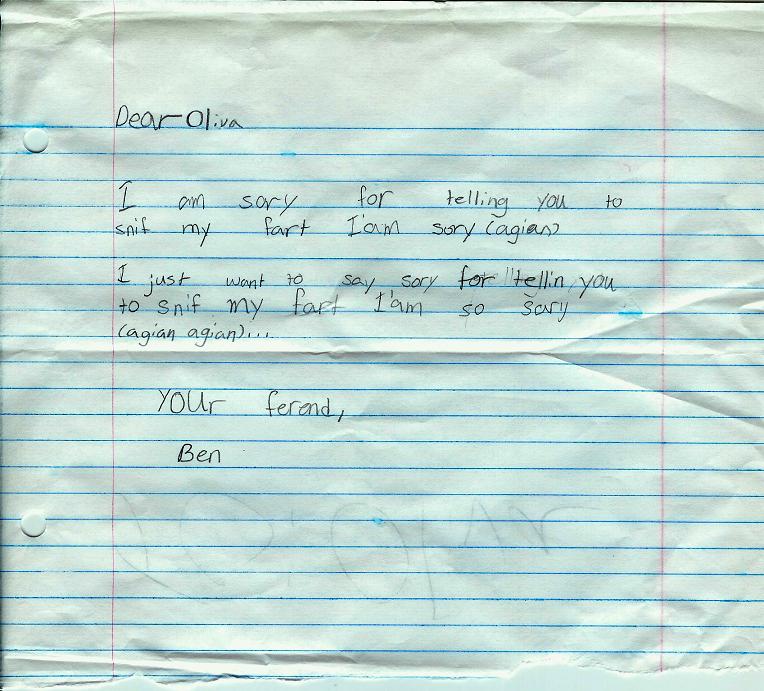 Dear Oliva
I am sory for telling you to
snif my fart I'am sory (agian)
I just want to say sory for tellin you
to snif my fart I'am so sory
(agian agian)...
Your ferend,
Ben